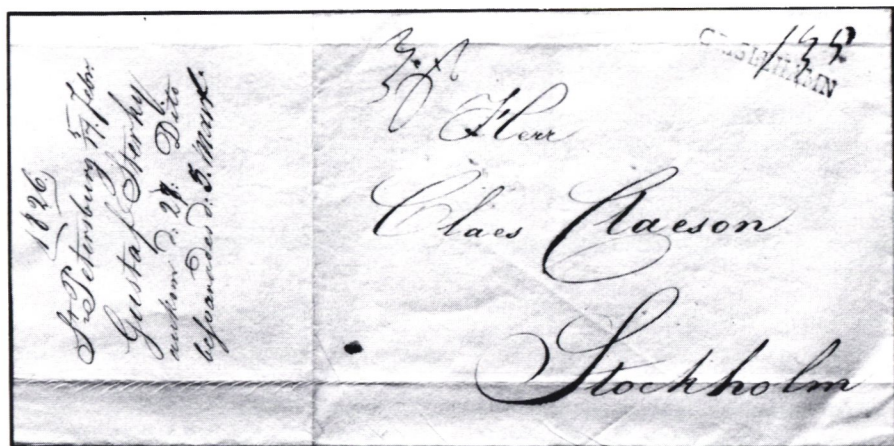 1826
St Petersburg 17/5 febr.
Gustaf Sterky
ankom d. 27. Dito
besvarades d. 3. Mars.
Herr
Claes Claeson
Stockholm